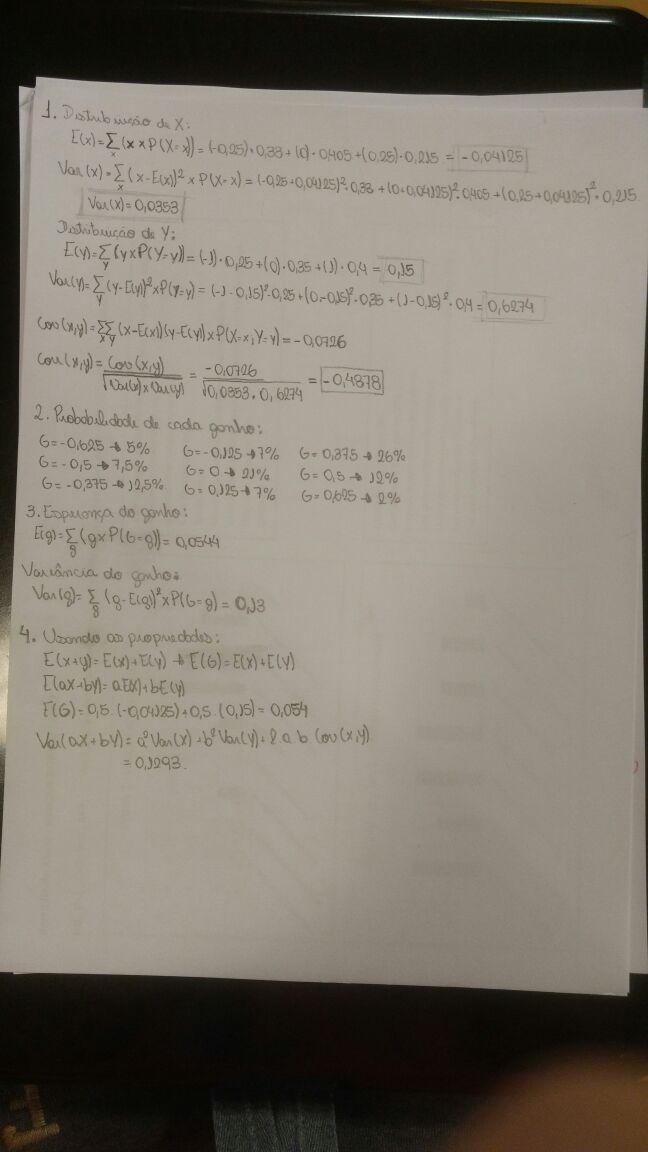 1. Distribuição de X:
E(x)=∑x(x×P(X=x))=(-0,25)·0,33+(0)·0,405+(0,25)·0,215 = -0,04125
Var(x)=∑x(x-E(x))²×P(X=x)=(-0,25+0,04125)²·0,33+(0+0,04125)²·0,405+(0,25+0,04125)²·0,215
Var(X)=0,0353
Distribuição de Y:
E(Y)=∑y(y×P(Y=y))=(-1)·0,25+(0)·0,35+(1)·0,4=0,15
Var(Y)=∑y(y-E(y))²×P(Y=y)=(-1-0,15)²·0,25+(0-0,15)²·0,35+(1-0,15)²·0,4=0,6274
Cov(x,y)=∑x∑y(x-E(x))(y-E(y))×P(X=x,Y=y)=-0,0726
Corr(x,y)=Cov(x,y)/√Var(x)×Var(y) = -0,0726/√0,0353·0,6274 = -0,4878
2. Probabilidade de cada ganho:
G=-0,625→5% G=-0,125→7% G=0,375→26%
G=-0,5→7,5% G=0→21% G=0,5→12%
G=-0,375→12,5% G=0,125→7% G=0,625→2%
3. Esperança do ganho:
E(g)=∑g(g×P(G=g))=0,0544
Variância do ganho:
Var(g)=∑g(g-E(g))²×P(G=g)=0,13
4. Usando as propriedades:
E(x+y)=E(x)+E(y)→E(G)=E(x)+E(y)
E(ax+bY)=aE(X)+bE(y)
E(G)=0,5.(-0,04125)+0,5.(0,15)=0,054
Var(aX+bY)=a²Var(x)+b²Var(y)+2.a.b Cov(x,y)
=0,1293.